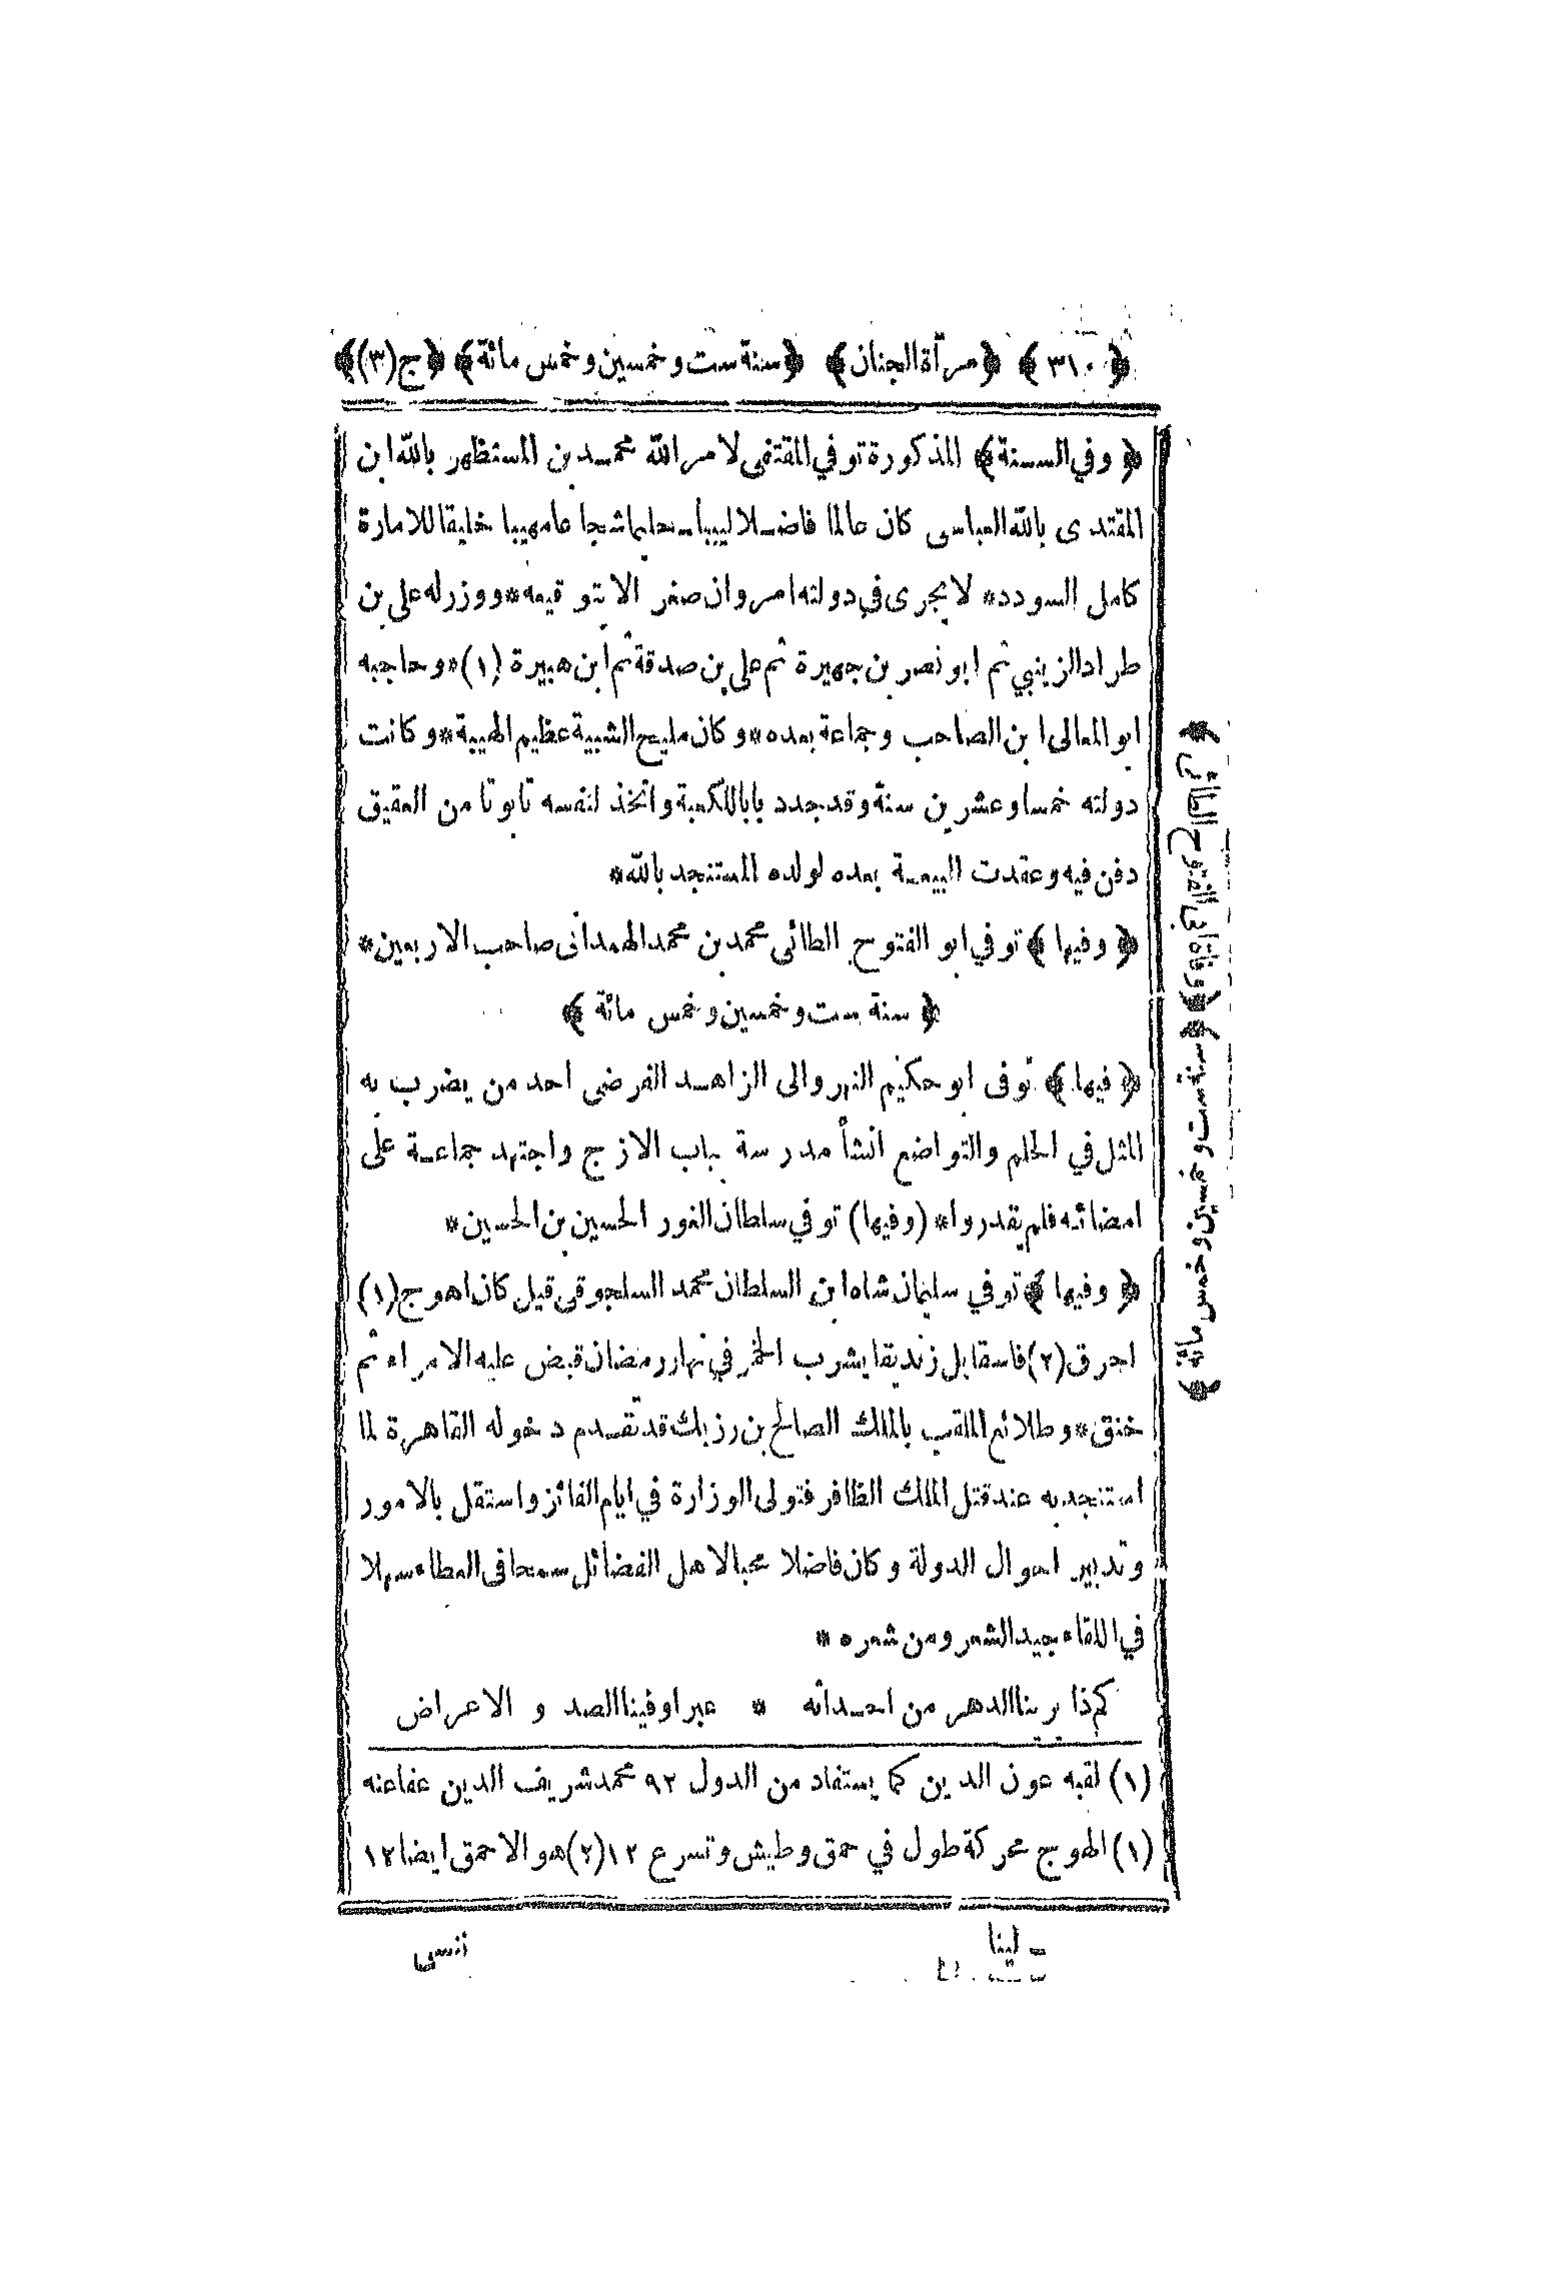 ﴿ ٣١٠ ﴾ ﴿ مرآة الجنان ﴾ ﴿ سنة ست وخمسين وخمس مائة ﴾ ﴿ ج (٣) ﴾
﴿ وفي السنة ﴾ المذكورة توفي المقتفى لامر الله محمد بن المستظهر بالله ابن
المقتدى بالله العباسى كان عالما فاضلا لبيبا حليما شجاعا مهيبا خليقا للامارة
كامل السودد* لا يجرى في دولته امر وان صغر الا بتوقيعه* ووزر له على بن
طراد الزينبي ثم ابو نصر بن جهيرة ثم على بن صدقة ثم ابن هبيرة (١)* وحاجبه
ابو المعالى ابن الصاحب وجماعة بعده* وكان مليح الشيبة عظيم الهيبة* وكانت
دولته خمسا وعشرين سنة وقد جدد بابا للكعبة واتخذ لنفسه تابوتا من العقيق
دفن فيه وعقدت البيعة بعده لولده المستنجد بالله*
﴿ وفيها ﴾ توفي ابو الفتوح الطائى محمد بن محمد الهمدانى صاحب الاربعين*
﴿ سنة ست وخمسين وخمس مائة ﴾
﴿ فيها ﴾ توفى ابو حكيم النهروالى الزاهد الفرضى احد من يضرب به
المثل في الحلم والتواضع انشأ مدرسة بباب الازج واجتهد جماعة على
امضائه فلم يقدروا* (وفيها) توفي سلطان الغور الحسين بن الحسين*
﴿ وفيها ﴾ توفي سليمان شاه ابن السلطان محمد السلجوقى قيل كان اهوج (١)
اخرق (٢) فاسقا بل زنديقا يشرب الخمر في نهار رمضان قبض عليه الامراء ثم
خنق* وطلائع الملقب بالملك الصالح بن رزيك قد تقدم دخوله القاهرة لما
استنجد به عند قتل الملك الظافر فتولى الوزارة في ايام الفائز واستقل بالامور
وتدبير احوال الدولة وكان فاضلا محبا لاهل الفضائل سمحا فى العطاء سهلا
في اللقاء جيد الشعر ومن شعره *
كم ذا يرينا الدهر من احداثه * عبرا وفينا الصد و الاعراض
(١) لقبه عون الدين كما يستفاد من الدول ٩٢ محمد شريف الدين عفا عنه
(١) الهوج محركة طول في حمق وطيش وتسرع ١٢ (٢) هو الاحمق ايضا ١٢
ننسى
﴿ وفاة ابى الفتوح الطائى ﴾
﴿ سنة ست وخمسين وخمس مائة ﴾